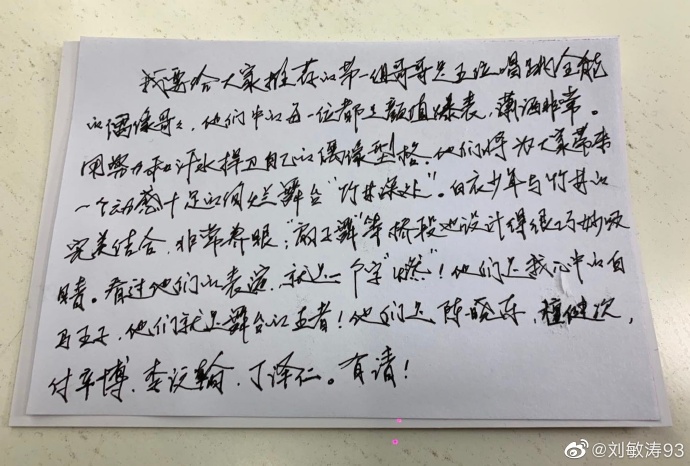 我要给大家推荐的第一组哥哥是五位唱跳全能
的偶像哥哥,他们中的每一位都是颜值爆表,潇洒非常。
用努力和汗水捍卫自己的偶像型格。他们将为大家带来
一个动感十足的绚烂舞台“竹林深处”。白衣少年与竹林的
完美结合,非常养眼,“扇子舞”等桥段也设计得很巧妙吸
睛。看过他们的表演,就是一个字“燃”!他们是我心中的白
马王子,他们就是舞台的王者!他们是陈晓东,檀健次,
付辛博,李汶翰,丁泽仁。有请!
@刘敏涛93